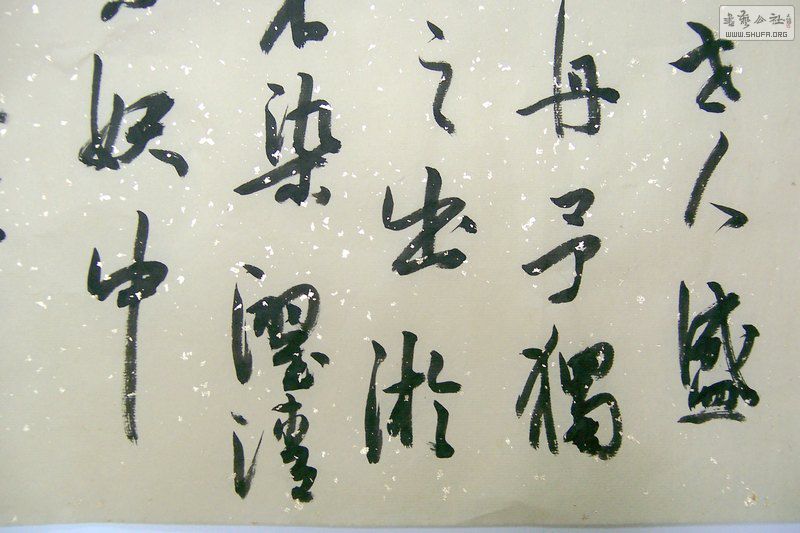 世人盛
丹予獨
之出淤
不染濯清
妖中
書藝公社
WWW.SHUFA.ORG